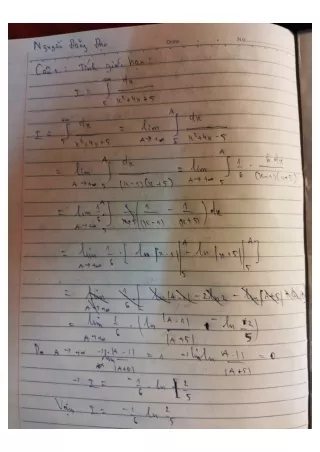 Nguyễn Đăng
Câu 2: Tính giới hạn:
I = ∫_5^{+∞} dx / (x²+4x-5)
I = ∫_5^{+∞} dx / (x²+4x-5) = lim_{A→+∞} ∫_5^A dx / (x²+4x-5)
= lim_{A→+∞} ∫_5^A dx / ((x-1)(x+5)) = lim_{A→+∞} ∫_5^A 1/6 · 6dx / ((x-1)(x+5))
= lim_{A→+∞} 1/6 ∫_5^A (1/(x-1) - 1/(x+5)) dx
= lim_{A→+∞} 1/6 · [ ln|x-1| |_5^A - ln|x+5| |_5^A ]
= lim_{A→+∞} 1/6 (ln |A-1|/|A+5| - ln 2/5)
Do A→+∞ |A-1|/|A+5| = 1 → lim ln |A-1|/|A+5| = 0
→ I = -1/6 · ln 2/5
Vậy I = -1/6 ln 2/5